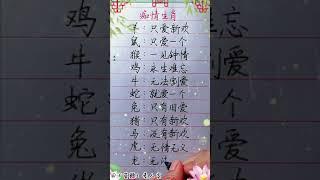 痴情生肖
羊：只爱新欢
鼠：只爱一个
猴：一见钟情
鸡：永生难忘
牛：无法割爱
蛇：就爱一个
兔：只有旧爱
猪：只有新欢
马：没有新欢
虎：无情无义
龙：无法